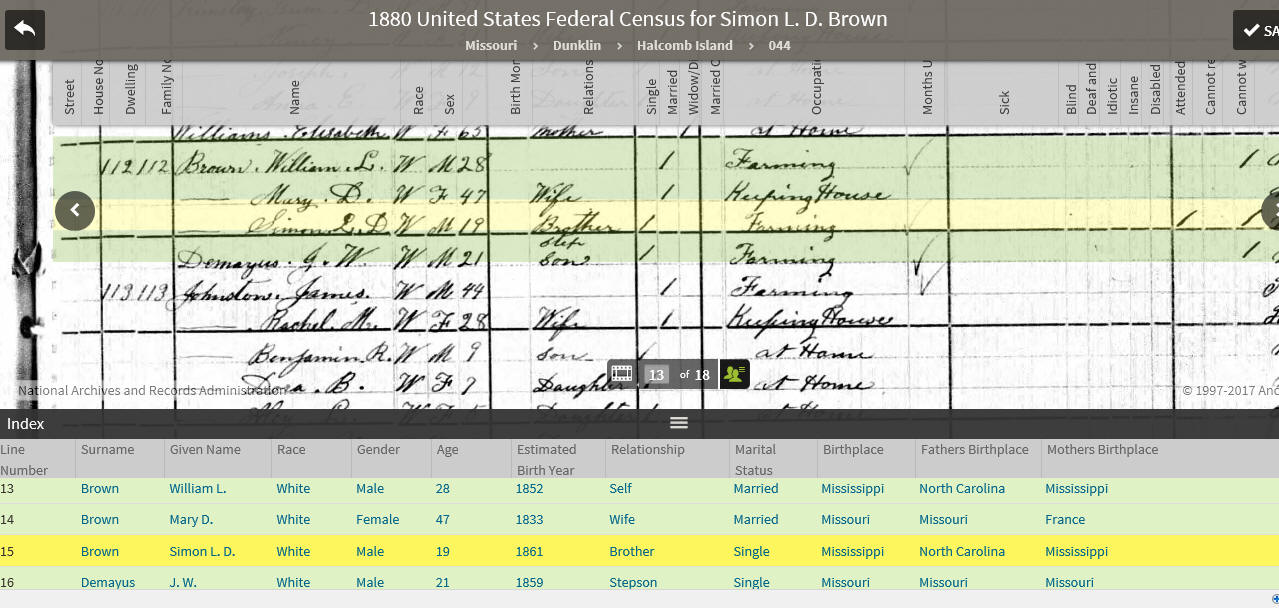 1880 United States Federal Census for Simon L. D. Brown
SA
Missouri > Dunklin > Halcomb Island > 044
Street House No Dwelling Family No Name Race Sex Birth Mon Relations Single Married Widow/D Married C Occupati Months U Sick Blind Deaf and Idiotic Insane Disabled Attended Cannot re Cannot w
Williams. Elisabeth W F 65 Mother 1 at Home
112 112 Brown. William. L. W M 28 1 Farming 1
— Mary. D. W F 47 Wife 1 Keeping House
— Simon L. D W M 19 Brother 1 Farming 1 1
Demayus. G. W. W M 21 Step Son 1 Farming 1
113 113 Johnston. James. W M 44 1 Farming
— Rachel. M. W F 28 Wife 1 Keeping House
— Benjamin. R. W M 9 Son at Home
B. W F 7 Daughter at Home
13 of 18
National Archives and Records Administration
© 1997-2017 Anc
Index
Line Number Surname Given Name Race Gender Age Estimated Birth Year Relationship Marital Status Birthplace Fathers Birthplace Mothers Birthplace
13 Brown William L. White Male 28 1852 Self Married Mississippi North Carolina Mississippi
14 Brown Mary D. White Female 47 1833 Wife Married Missouri Missouri France
15 Brown Simon L. D. White Male 19 1861 Brother Single Mississippi North Carolina Mississippi
16 Demayus J. W. White Male 21 1859 Stepson Single Missouri Missouri Missouri